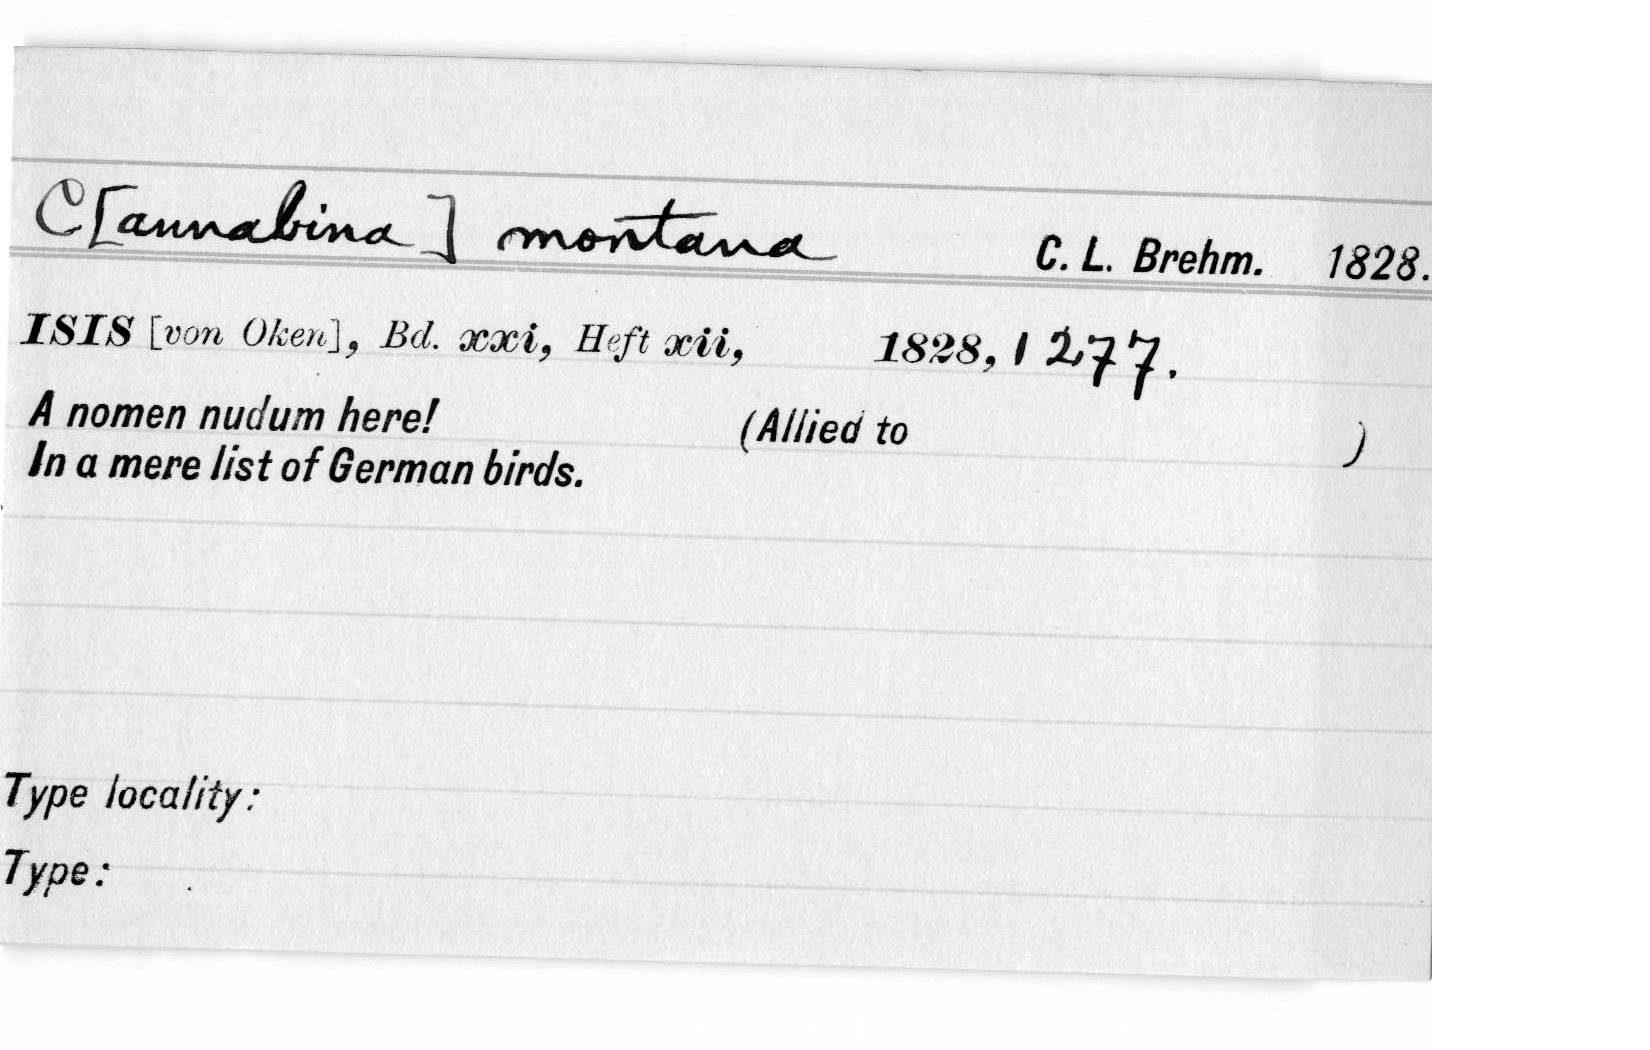 C[annabina] montana C. L. Brehm. 1828.
ISIS [von Oken], Bd. xxi, Heft xii, 1828, 1277.
A nomen nudum here! (Allied to )
In a mere list of German birds.
Type locality:
Type: